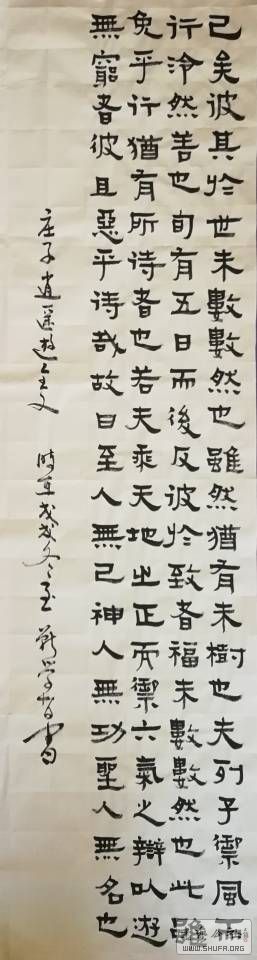 已矣彼其於世未數數然也雖然猶有未樹也夫列子禦風而
行泠然善也旬有五日而後反彼於致者福未數數然也此雖
免乎行猶有所待者也若夫乘天地之正而禦六氣之辯以遊
無窮者彼且惡乎待哉故曰至人無己神人無功聖人無名也
庄子逍遥遊全文 時在戊戌冬至 學智書
WWW.SHUFA.ORG